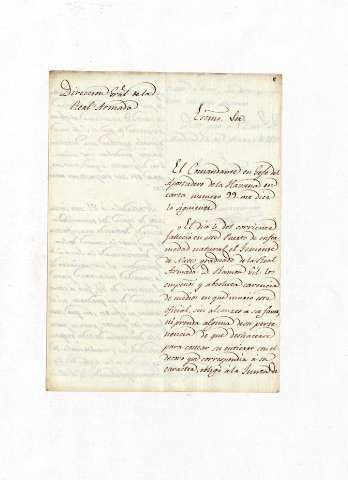 Direccion Gral de la
Real Armada
Exmo. Sor
El Comandante en Gefe del
Apostadero de la Havana en
carta numero 99 me dice
lo siguiente
El dia 5 del corriente
falleció en este Puerto de enfer
medad natural el Teniente
de Navio graduado de la Real
Armada D. Ramon Gil. los
empeños y absoluta carencia
de medios en que murió este
oficial, sin alcanzes a su favor
ni prenda alguna de su perte
nencia de que deshacerse
para costear su entierro con el
decoro que correspondia a su
caracter, obligó a la Junta de